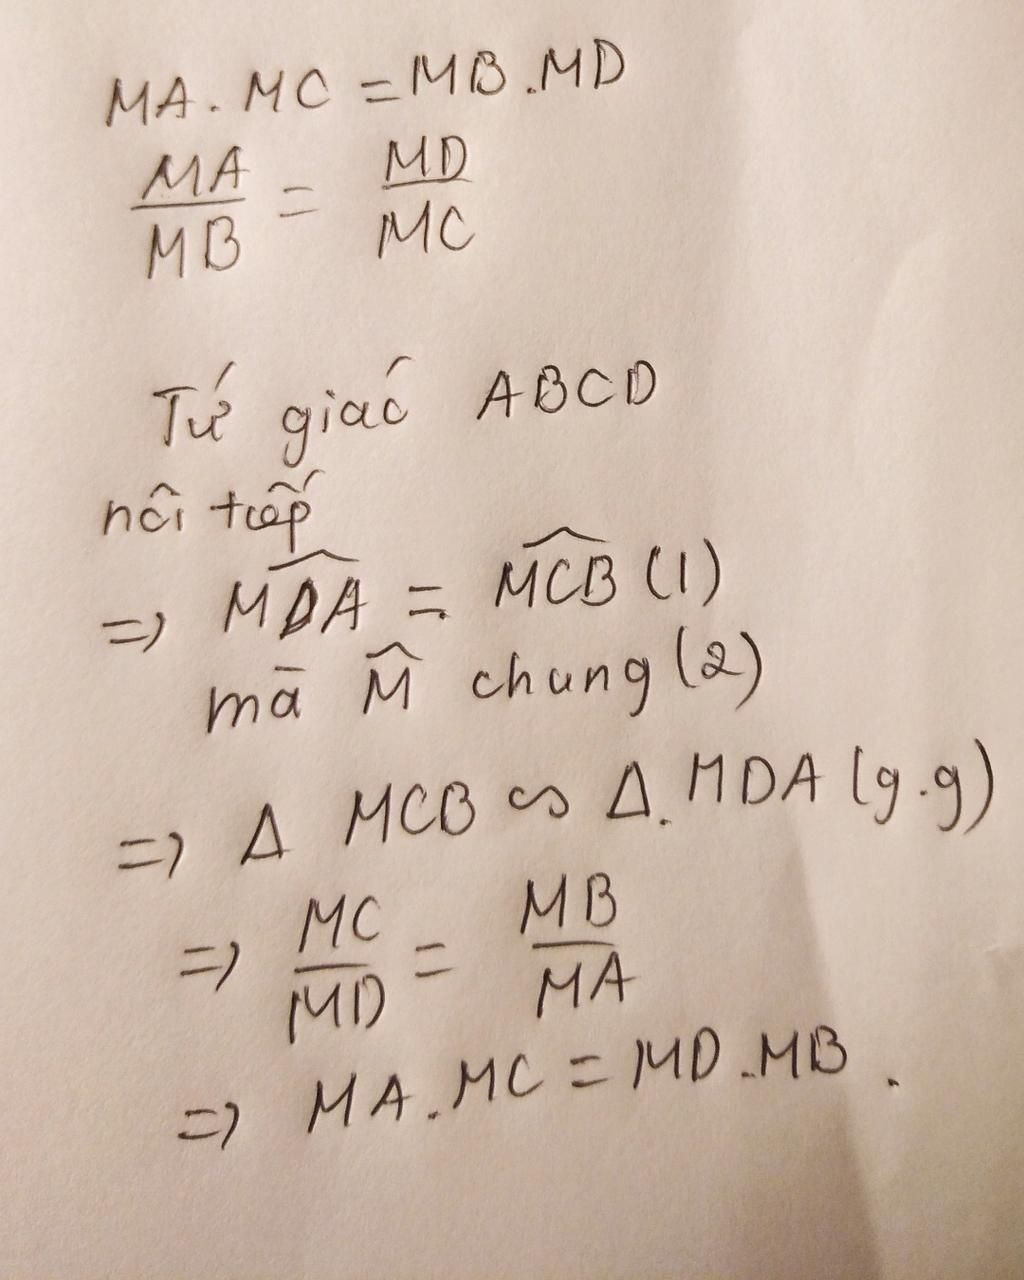 MA . MC = MB . MD
MA/MB = MD/MC
Tứ giác ABCD
nôi tiếp
=> \widehat{MDA} = \widehat{MCB} (1)
mā \widehat{M} chung (2)
=> Δ MCB ∽ Δ. MDA (g.g)
=> MC/MD = MB/MA
=> MA . MC = MD . MB .